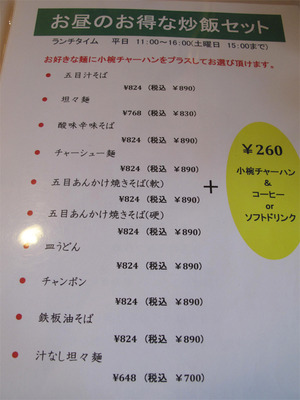 お昼のお得な炒飯セット
ランチタイム 平日 11:00～16:00(土曜日 15:00まで)
お好きな麺に小椀チャーハンをプラスしてお選び頂けます。
五目汁そば
¥824 (税込 ¥890)
坦々麺
¥768 (税込 ¥830)
酸味辛味そば
¥824 (税込 ¥890)
チャーシュー麺
¥824 (税込 ¥890)
五目あんかけ焼きそば(軟)
¥824 (税込 ¥890)
五目あんかけ焼きそば(硬)
¥824 (税込 ¥890)
皿うどん
¥824 (税込 ¥890)
チャンポン
¥824 (税込 ¥890)
鉄板油そば
¥824 (税込 ¥890)
汁なし坦々麺
¥648 (税込 ¥700)
+
¥260
小椀チャーハン
&
コーヒー
or
ソフトドリンク